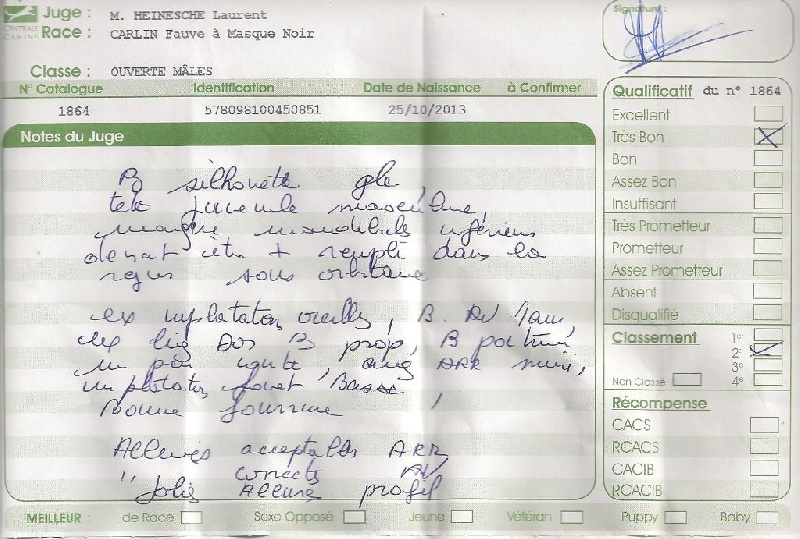 CENTRALE CANINE
Juge : M. HEINESCHE Laurent
Race : CARLIN Fauve à Masque Noir
Classe : OUVERTE MÂLES
N° Catalogue Identification Date de Naissance à Confirmer
1864 578098100450851 25/10/2013
Notes du Juge
B silhouette gle,
tete juvenile masculine,
maxillaire inférieur
devrait être + rempli dans la
region sous orbitaire
ex implantation oreilles, B. AV
ex lig Dos B prop, B poitrine,
un peu ARR
implantation fouet Basse
Bonne fourrure
Allures acceptables ARR
" correctes AV
Jolie Allure profil
Signature :
Qualificatif du n° 1864
Excellent
Très Bon
Bon
Assez Bon
Insuffisant
Très Prometteur
Prometteur
Assez Prometteur
Absent
Disqualifié
Classement 1°
2°
3°
Non Classé 4°
Récompense
CACS
RCACS
CACIB
RCACIB
MEILLEUR : de Race Sexe Opposé Jeune Vétéran Puppy Baby